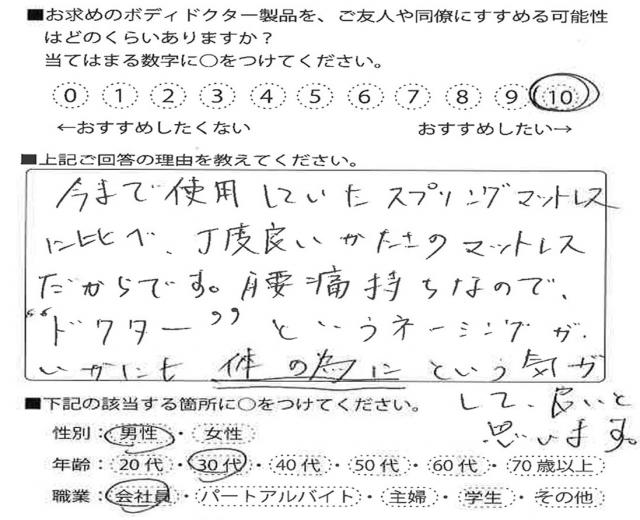 ■お求めのボディドクター製品を、ご友人や同僚にすすめる可能性
はどのくらいありますか？
当てはまる数字に○をつけてください。
0 1 2 3 4 5 6 7 8 9 10
←おすすめしたくない おすすめしたい→
■上記ご回答の理由を教えてください。
今まで使用していたスプリングマットレス
に比べ、丁度良いかたさのマットレス
だからです。腰痛持ちなので、
“ドクター”というネーミングが、
いかにも体の為にという気が
して、良いと
思います。
■下記の該当する箇所に○をつけてください。
性別：男性・女性
年齢：20代・30代・40代・50代・60代・70歳以上
職業：会社員・パートアルバイト・主婦・学生・その他